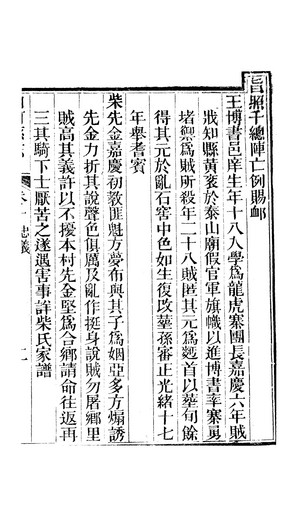 旨照千總陣亡例賜卹
王博書邑庠生年十八入學爲龍虎寨團長嘉慶六年賊
戕知縣黃衮於泰山廟假官軍旗幟以進博書率寨勇
堵禦爲賊所殺年二十八賊匿其元爲遶首以葬旬餘
得其元於亂石窖中色如生復改葬孫審正光緒十七
年舉耆賓
柴先金嘉慶初教匪魁方夢布與其子爲姻亞多方煽誘
先金力折其說聲色俱厲及亂作挺身說賊勿屠鄉里
賊高其義許以不擾本村先金堅爲合鄉請命往返再
三其騎下士厭苦之遂遇害事詳柴氏家譜
忠義